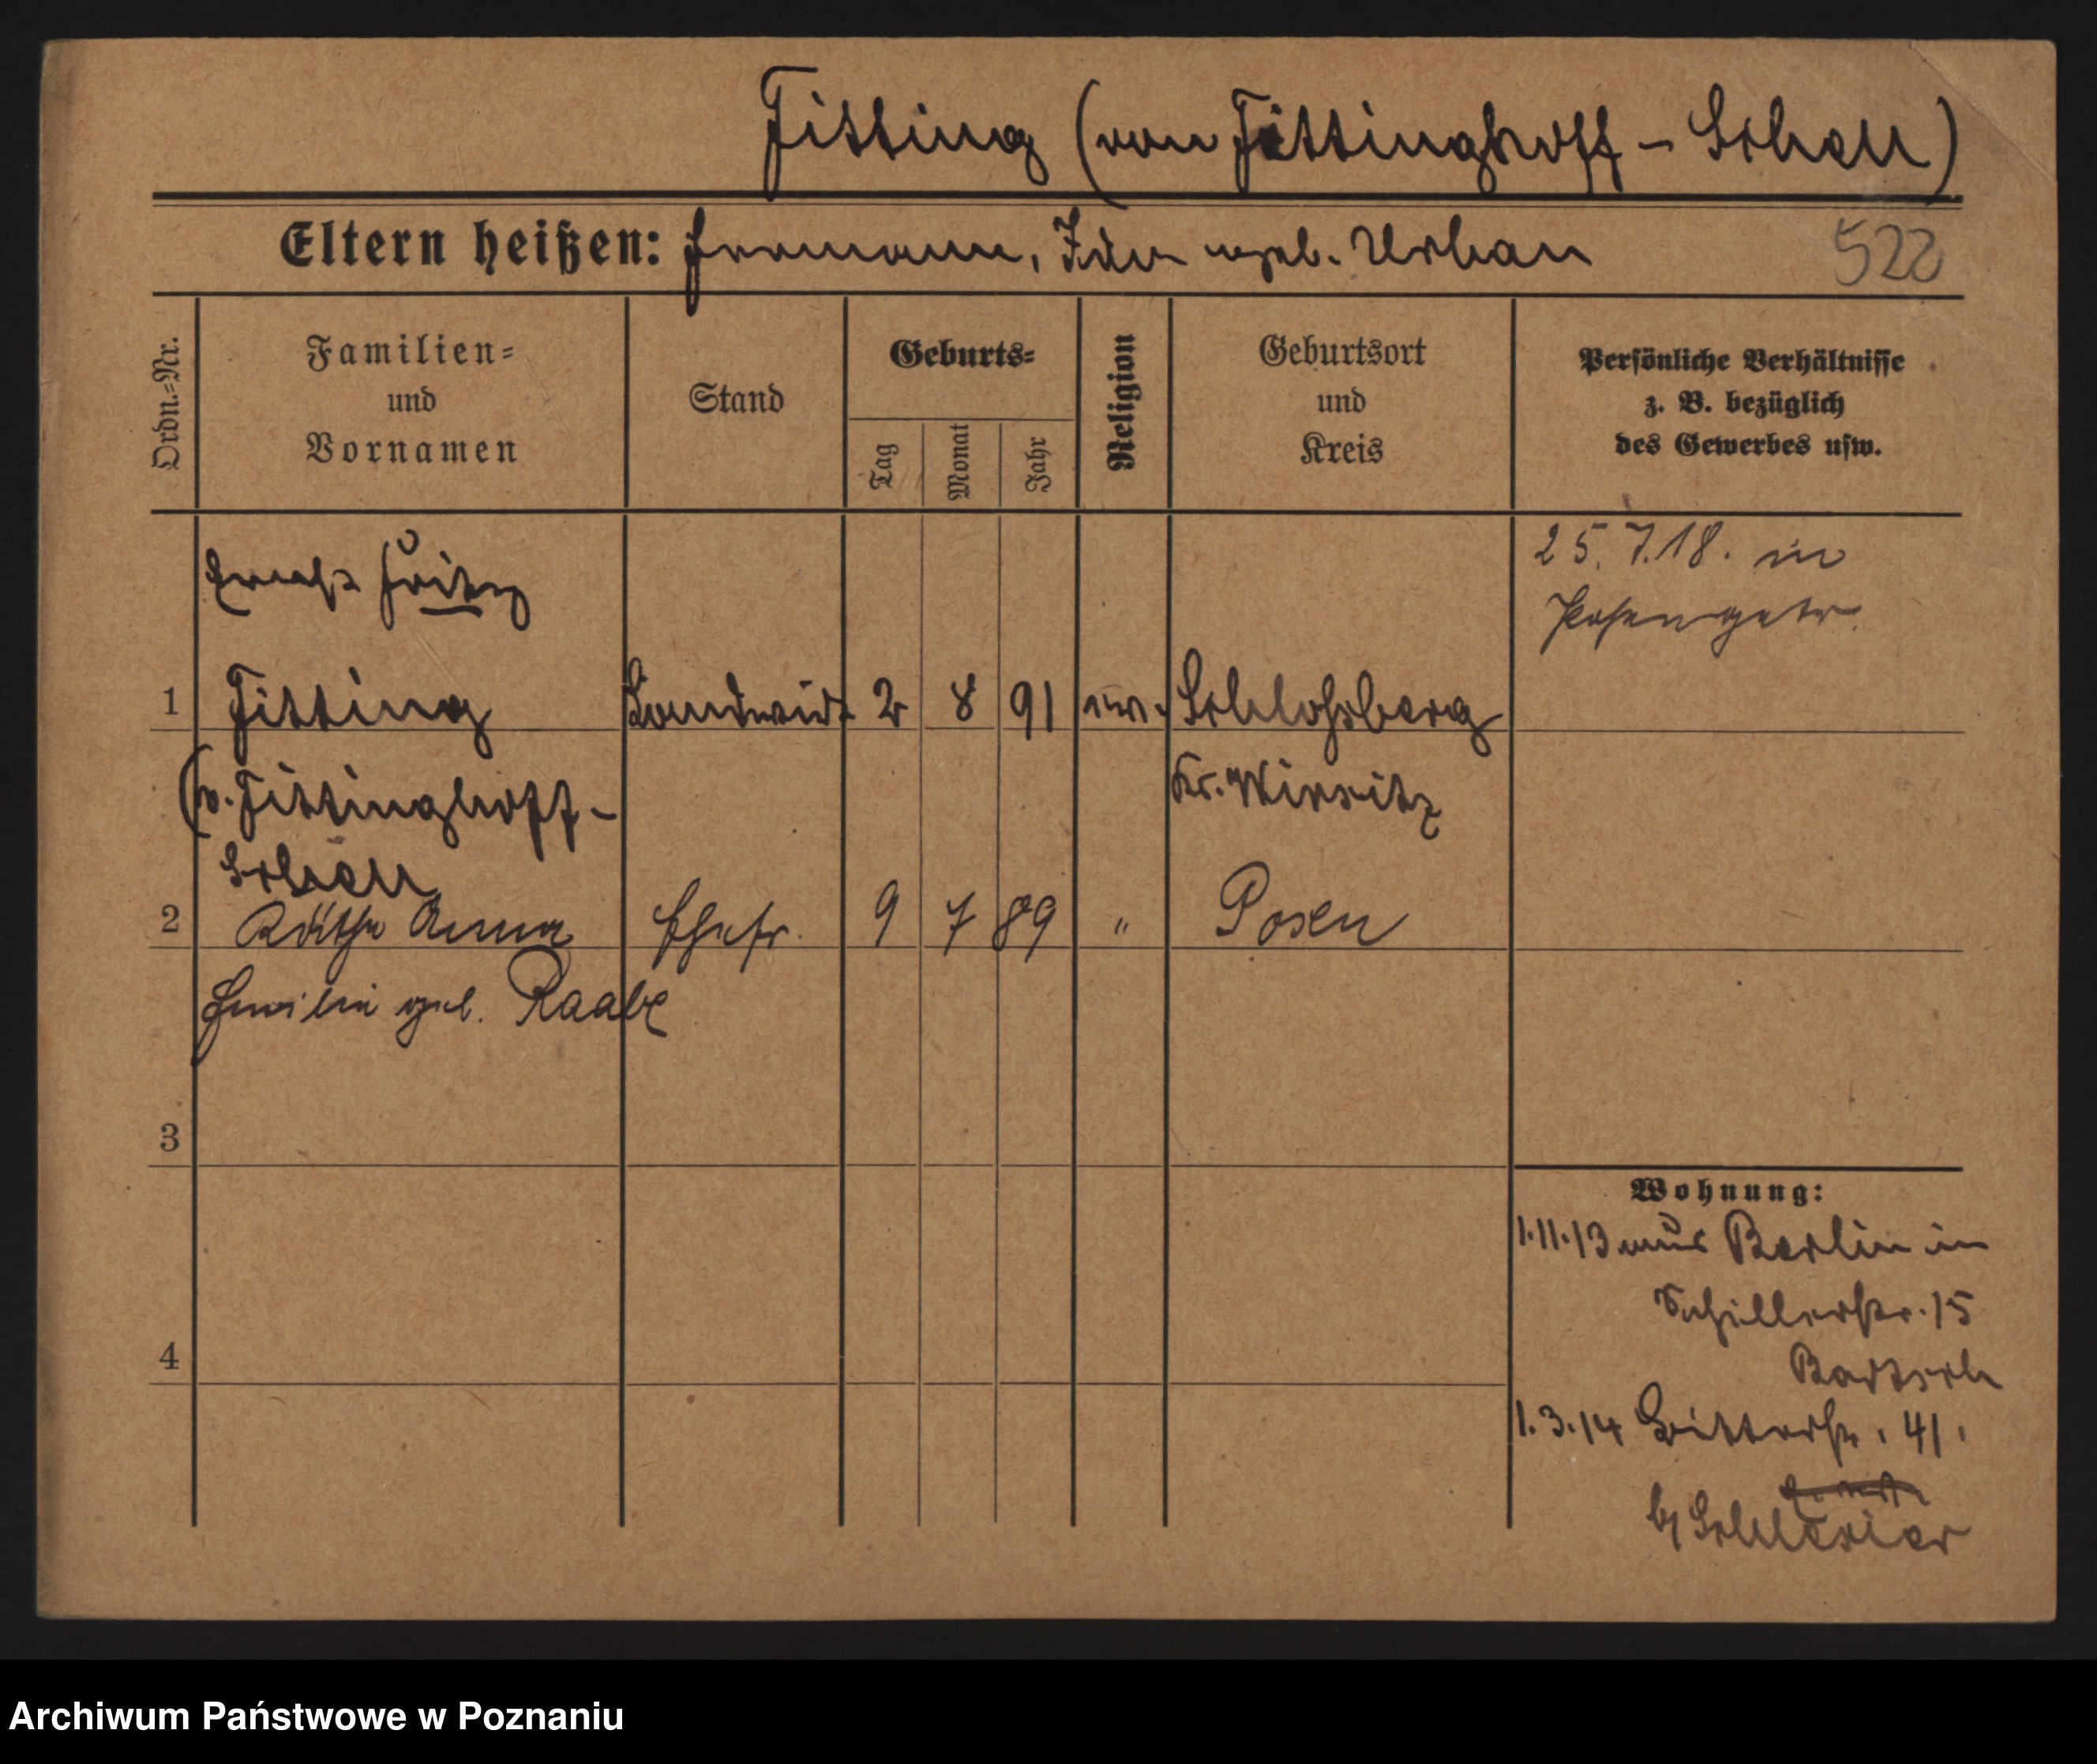 Fitting (von Fittinghoff - Schell)
Eltern heißen: Hermann, Ida geb. Urban
522
Ordn.=Nr.
Familien=
und
Vornamen
Stand
Geburts=
Tag
Monat
Jahr
Religion
Geburtsort
und
Kreis
Persönliche Verhältnisse
z. B. bezüglich
des Gewerbes usw.
Ernst Fritz
25.7.18. in
Posen getr.
1 Fitting Landwirt 2 8 91 ev. Schlossberg
(v. Fittinghoff-
Kr. Wirsitz
Schell
2 Käthe Anna Ehefr. 9 7 89 " Posen
Emilie geb. Raabe
3
Wohnung:
1.11.13 aus Berlin in
Schillerstr. 15
Bartsch
4
1.3.14 Ritterstr. 41.
b/ Schlesier